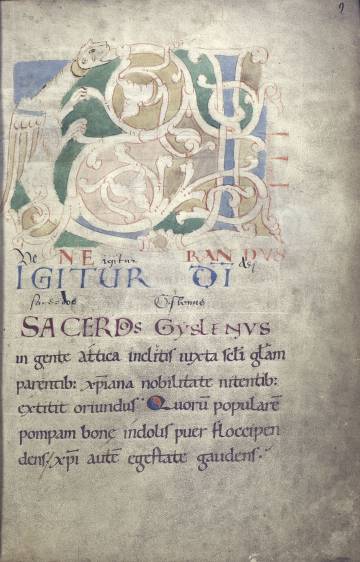 9
VE NE RAN DVS
Ve igitur dei
IGITUR DI
sacerdos Gislenus
SACERDOS GYSLENVS
in gente attica inclitis iuxta scłi głam
parentib: xp̄iana nobilitate nitentib:
extitit oriundus. Quorū popularē
pompam bonę indolis puer floccipen
dens. xp̄i autē egestate gaudens.